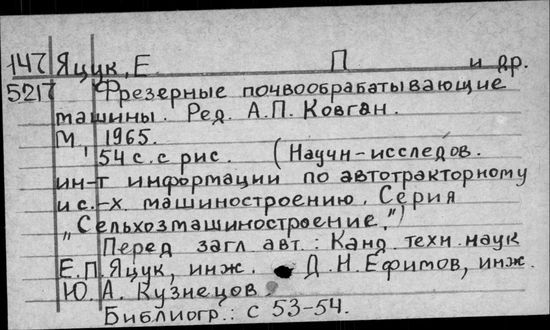 147 Яцук, Е. П и др.
5217 Фрезерные почвообрабатывающие
машины. Ред. А.П. Ковган.
М., 1965.
54 с. с рис. (Научн-исследов.
ин-т информации по автотракторному
и с.-х. машиностроению. Серия
„Сельхозмашиностроение.")
Перед загл авт.: Канд. техн. наук
Е.П. Яцук, инж. Д.Н. Ефимов, инж.
Ю.А. Кузнецов.
Библиогр.: с 53-54.